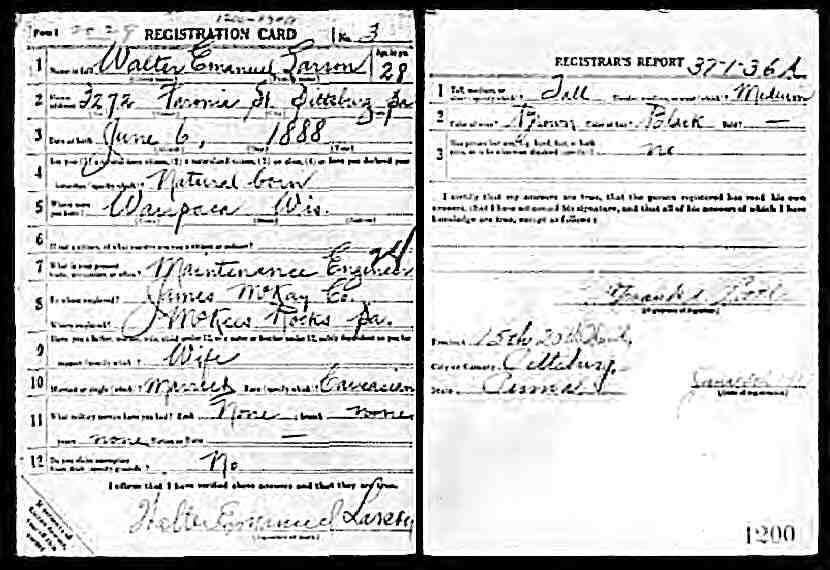 Form 1 REGISTRATION CARD No. 3
1 Name in full Walter Emanuel Larson Age, in yrs. 28
2 Home address 3272 St. Pittsburg, Pa
3 Date of birth June 6, 1888
(Month) (Day) (Year)
4 Are you (1) a natural-born citizen, (2) a naturalized citizen, (3) an alien, (4) or have you declared your
intention (specify which)? Natural born
5 Where were you born? Waupaca Wis.
6 If not a citizen, of what country are you a citizen or subject?
7 What is your present trade, occupation, or office? Maintenance Engineer 24
8 By whom employed? James McKay Co.
Where employed? McKees Rocks Pa.
9 Have you a father, mother, wife, child under 12, or a sister or brother under 12, solely dependent on you for
support (specify which)? Wife
10 Married or single (which)? Married Race (specify which)? Caucasian
11 What military service have you had? Rank None ; branch none
years none Nation or State —
12 Do you claim exemption from draft (specify grounds)? No
I affirm that I have verified above answers and that they are true.
Walter Emanuel Larson
(Signature or mark)
REGISTRAR'S REPORT 37-1-36 A
1 Tall, medium, or short (specify which)? Tall Slender, medium, or stout (which)? Medium
2 Color of eyes? Brown Color of hair? Black Bald? —
3 no
I certify that my answers are true, that the person registered has read his own
answers, that I have witnessed his signature, and that all of his answers of which I have
knowledge are true, except as follows:
(Signature of registrar)
Precinct 15th 20th Ward
City or County Pittsburg
State Penna
(Date of registration)
1200